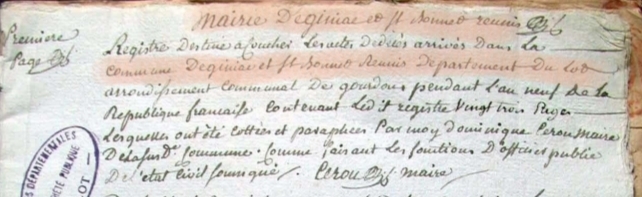 Mairie Deginiac et St Bonnet reunis
Premiere
Page
Registre Destiné a Coucher Les actes Dedécés arrivés Dans La
Commune Deginiac et St Bonnet Reunis Departement Du Lot
arrondissement Communal De gourdon pendant L'an neuf de La
Republique francaise Contenant Ledit registre Vingt trois Pages
Lesquelles ont été Cottées et paraphées Par moy dominique Cerou maire
De la susd. Commune. Comme faisant Les fonctions D'officier public
De L'etat Civil Soussigné. Cerou maire
DÉPARTEMENTALES
PUBLIQUE
LOT